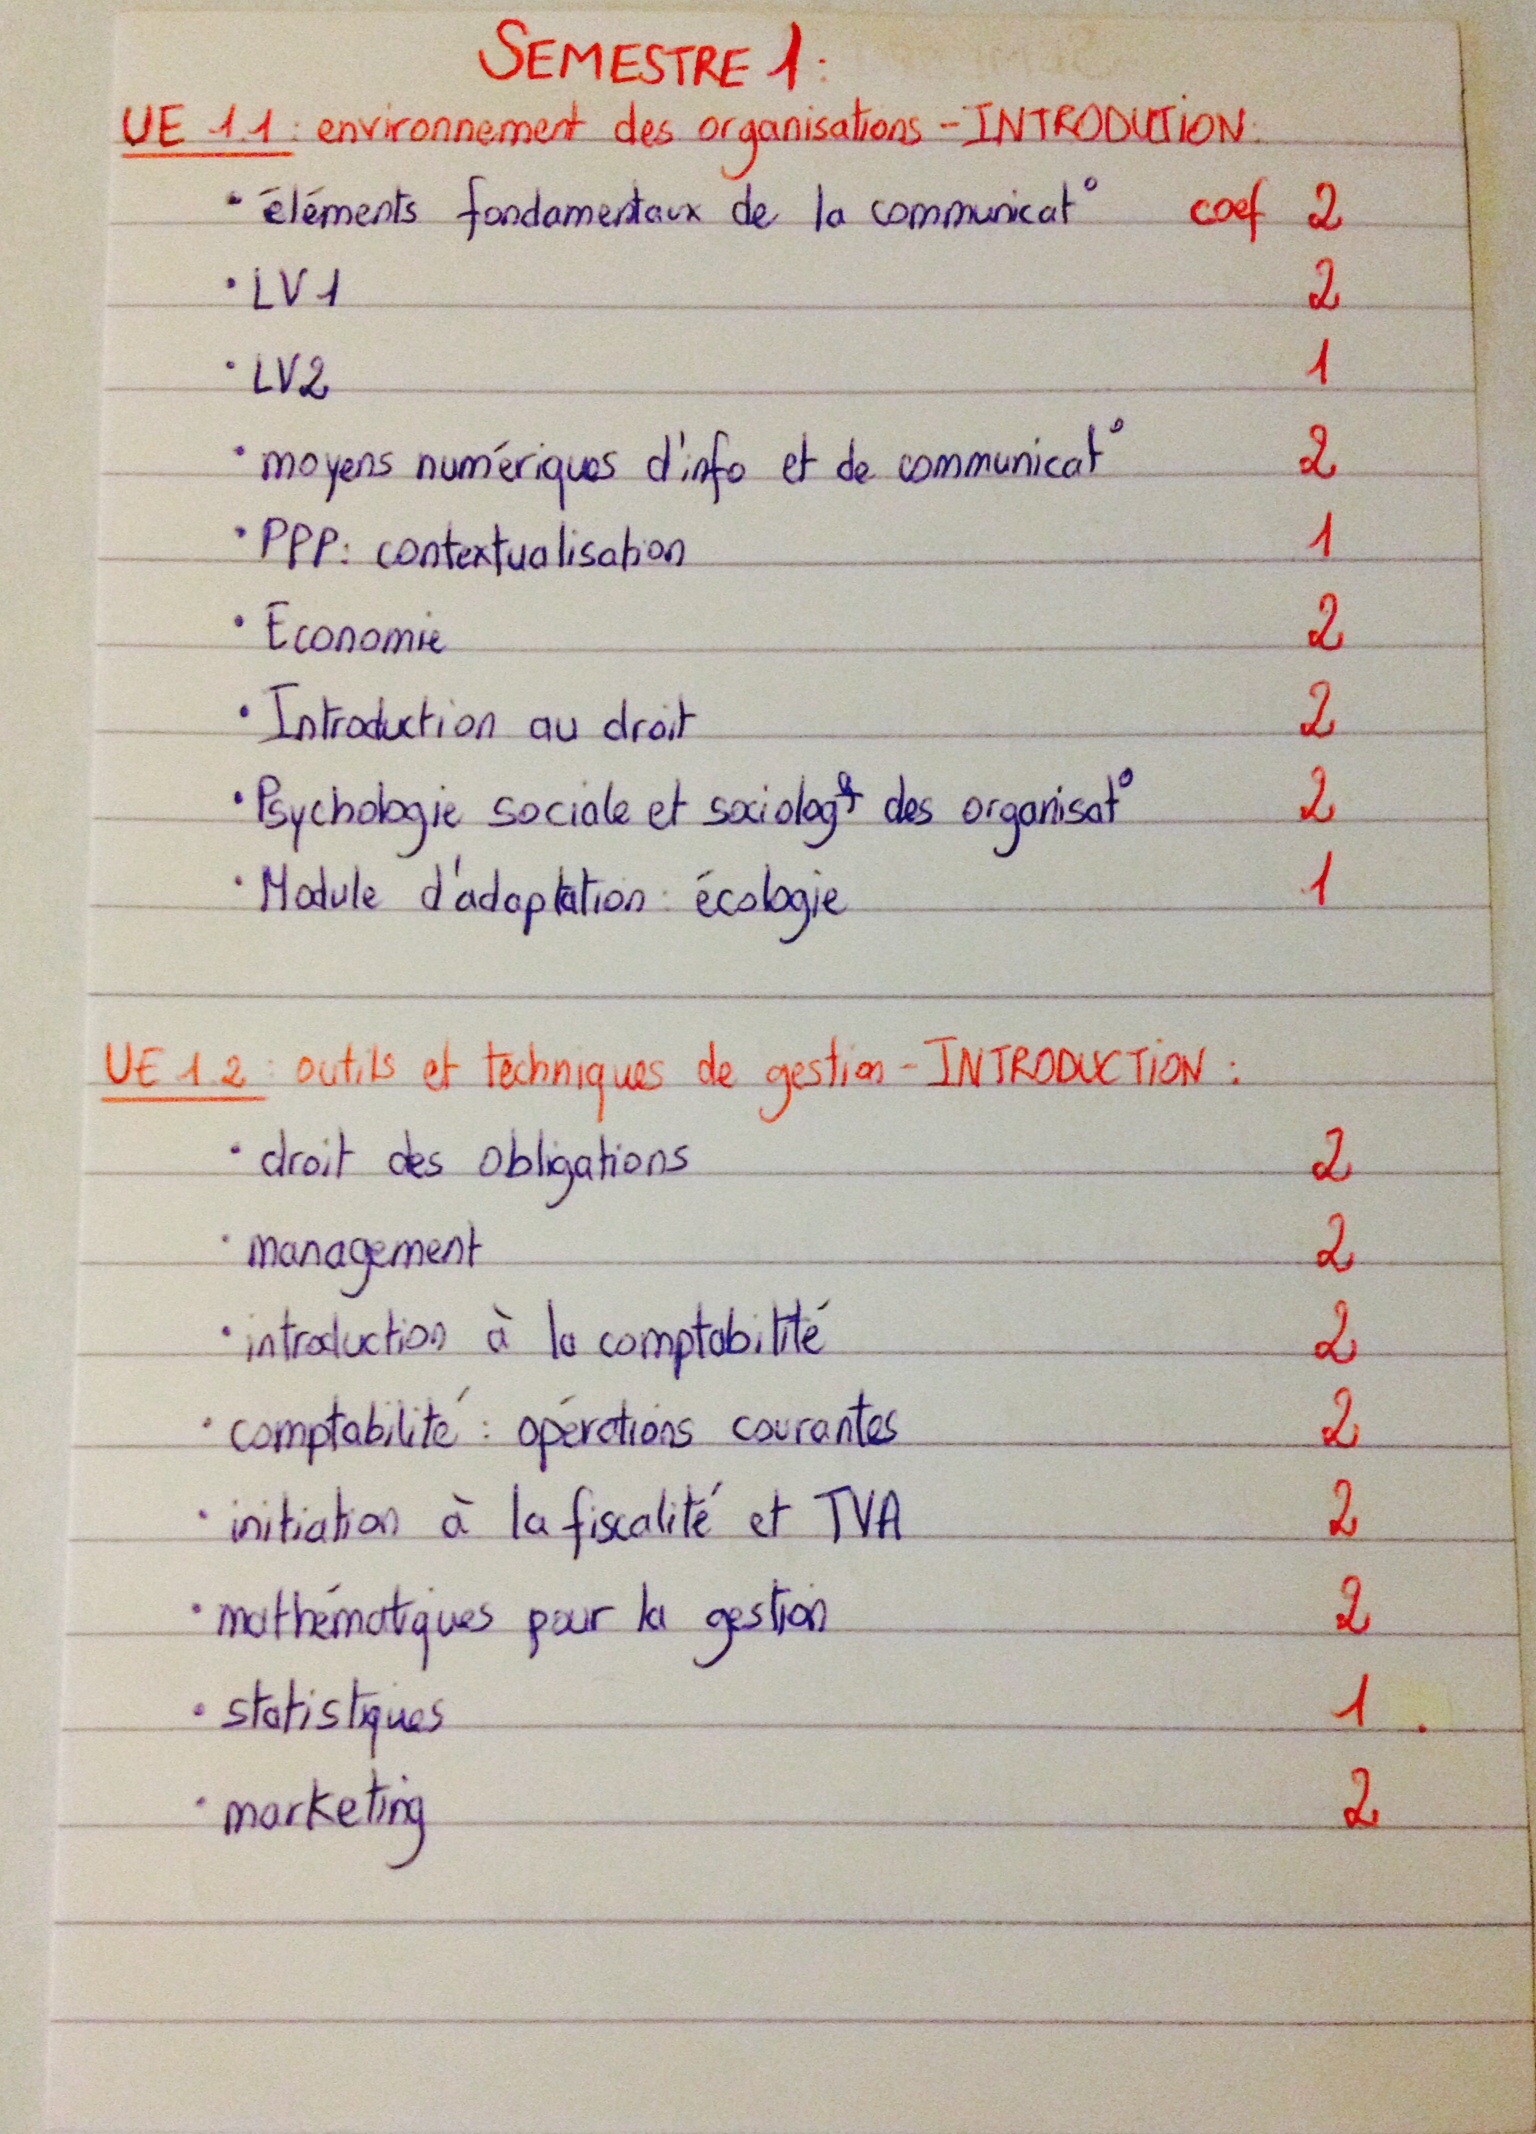 SEMESTRE 1 :
UE 1.1 : environnement des organisations - INTRODUTION :
• éléments fondamentaux de la communicat° coef 2
• LV1 2
• LV2 1
• moyens numériques d'info et de communicat° 2
• PPP : contextualisation 1
• Economie 2
• Introduction au droit 2
• Psychologie sociale et sociolog des organisat° 2
• Module d'adaptation : écologie 1
UE 1.2 : outils et techniques de gestion - INTRODUCTION :
• droit des obligations 2
• management 2
• introduction à la comptabilité 2
• comptabilité : opérations courantes 2
• initiation à la fiscalité et TVA 2
• mathématiques pour la gestion 2
• statistiques 1 .
• marketing 2